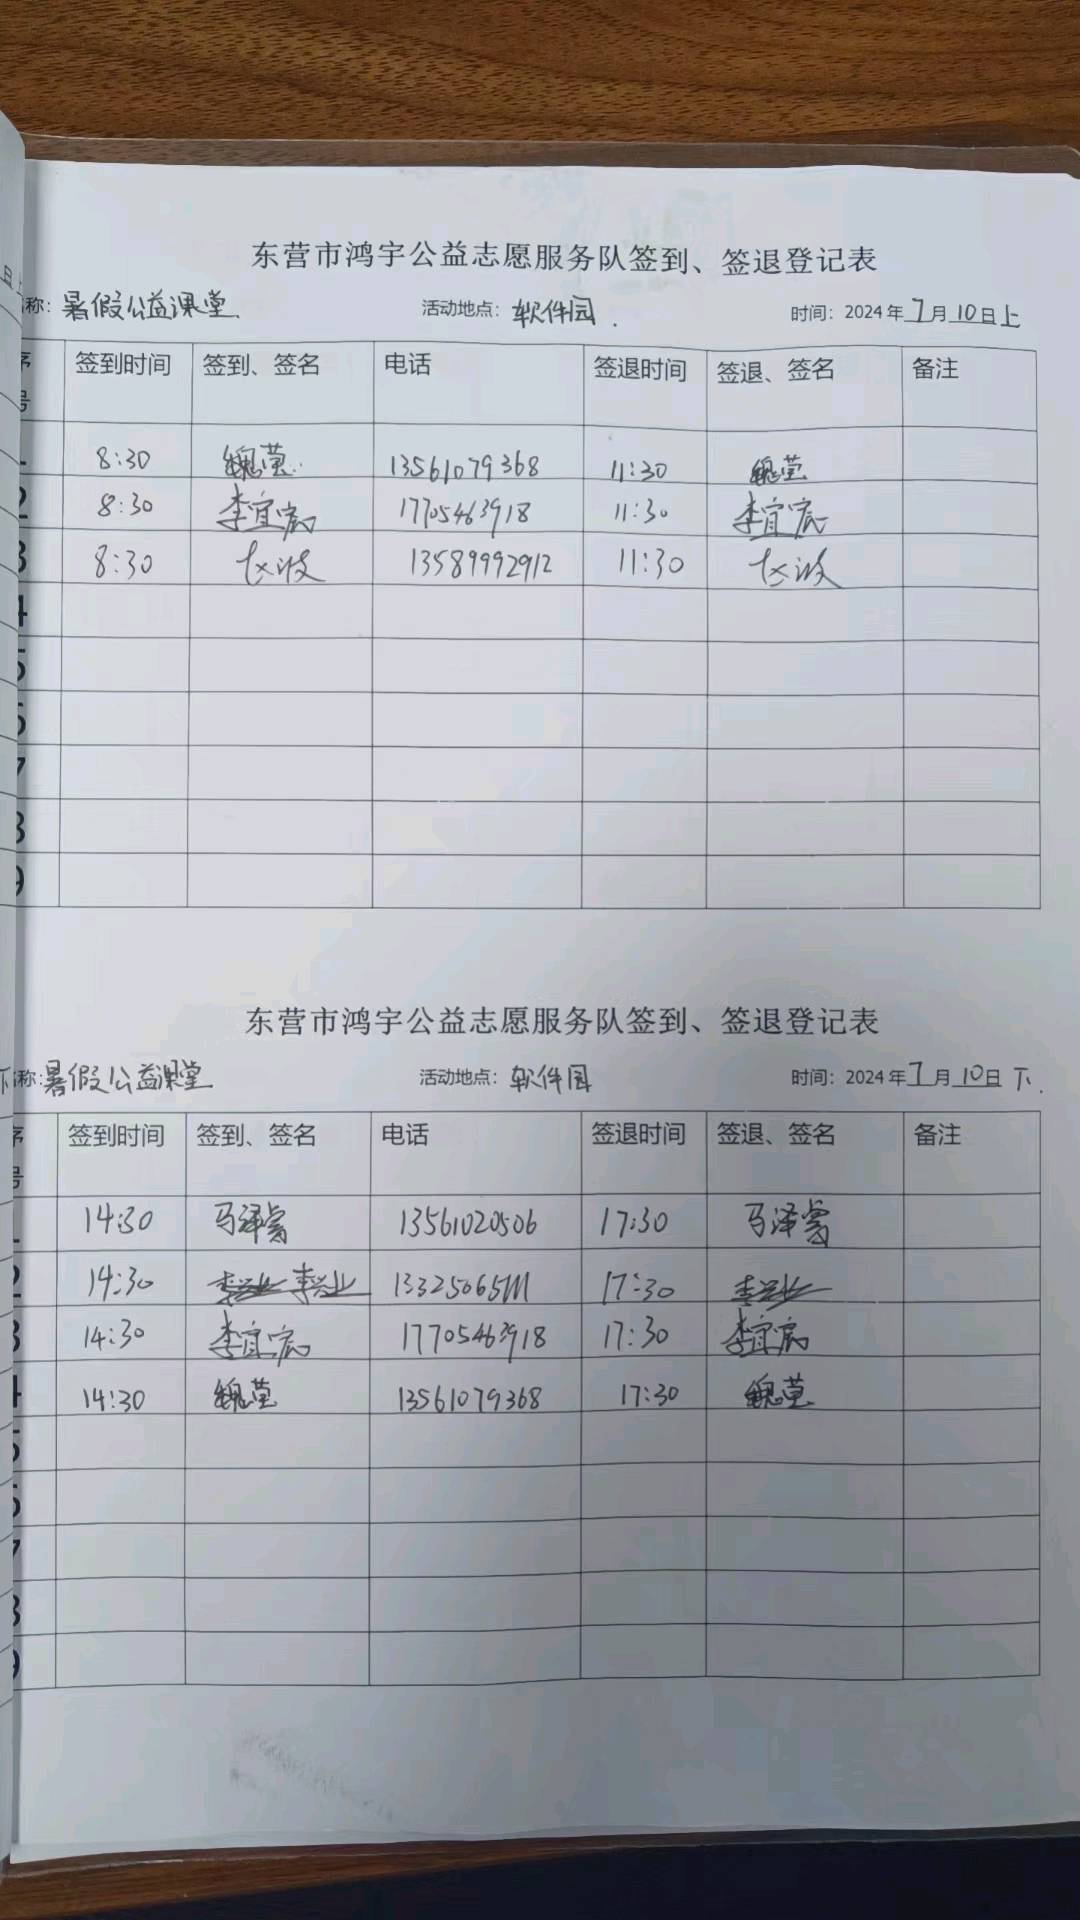 东营市鸿宇公益志愿服务队签到、签退登记表
称：暑假公益课堂 活动地点：软件园 时间：2024年7月10日上
序号 签到时间 签到、签名 电话 签退时间 签退、签名 备注
1 8:30 魏莹 13561079368 11:30 魏莹
2 8:30 李宜宸 17705463918 11:30 李宜宸
3 8:30 13589992912 11:30
4
5
6
7
8
9
东营市鸿宇公益志愿服务队签到、签退登记表
称：暑假公益课堂 活动地点：软件园 时间：2024年7月10日下
序号 签到时间 签到、签名 电话 签退时间 签退、签名 备注
1 14:30 马泽 13561020506 17:30 马泽
2 14:30 李兴业 17:30 李兴业
3 14:30 李宜宸 17705463918 17:30 李宜宸
4 14:30 魏莹 13561079368 17:30 魏莹
5
6
7
8
9